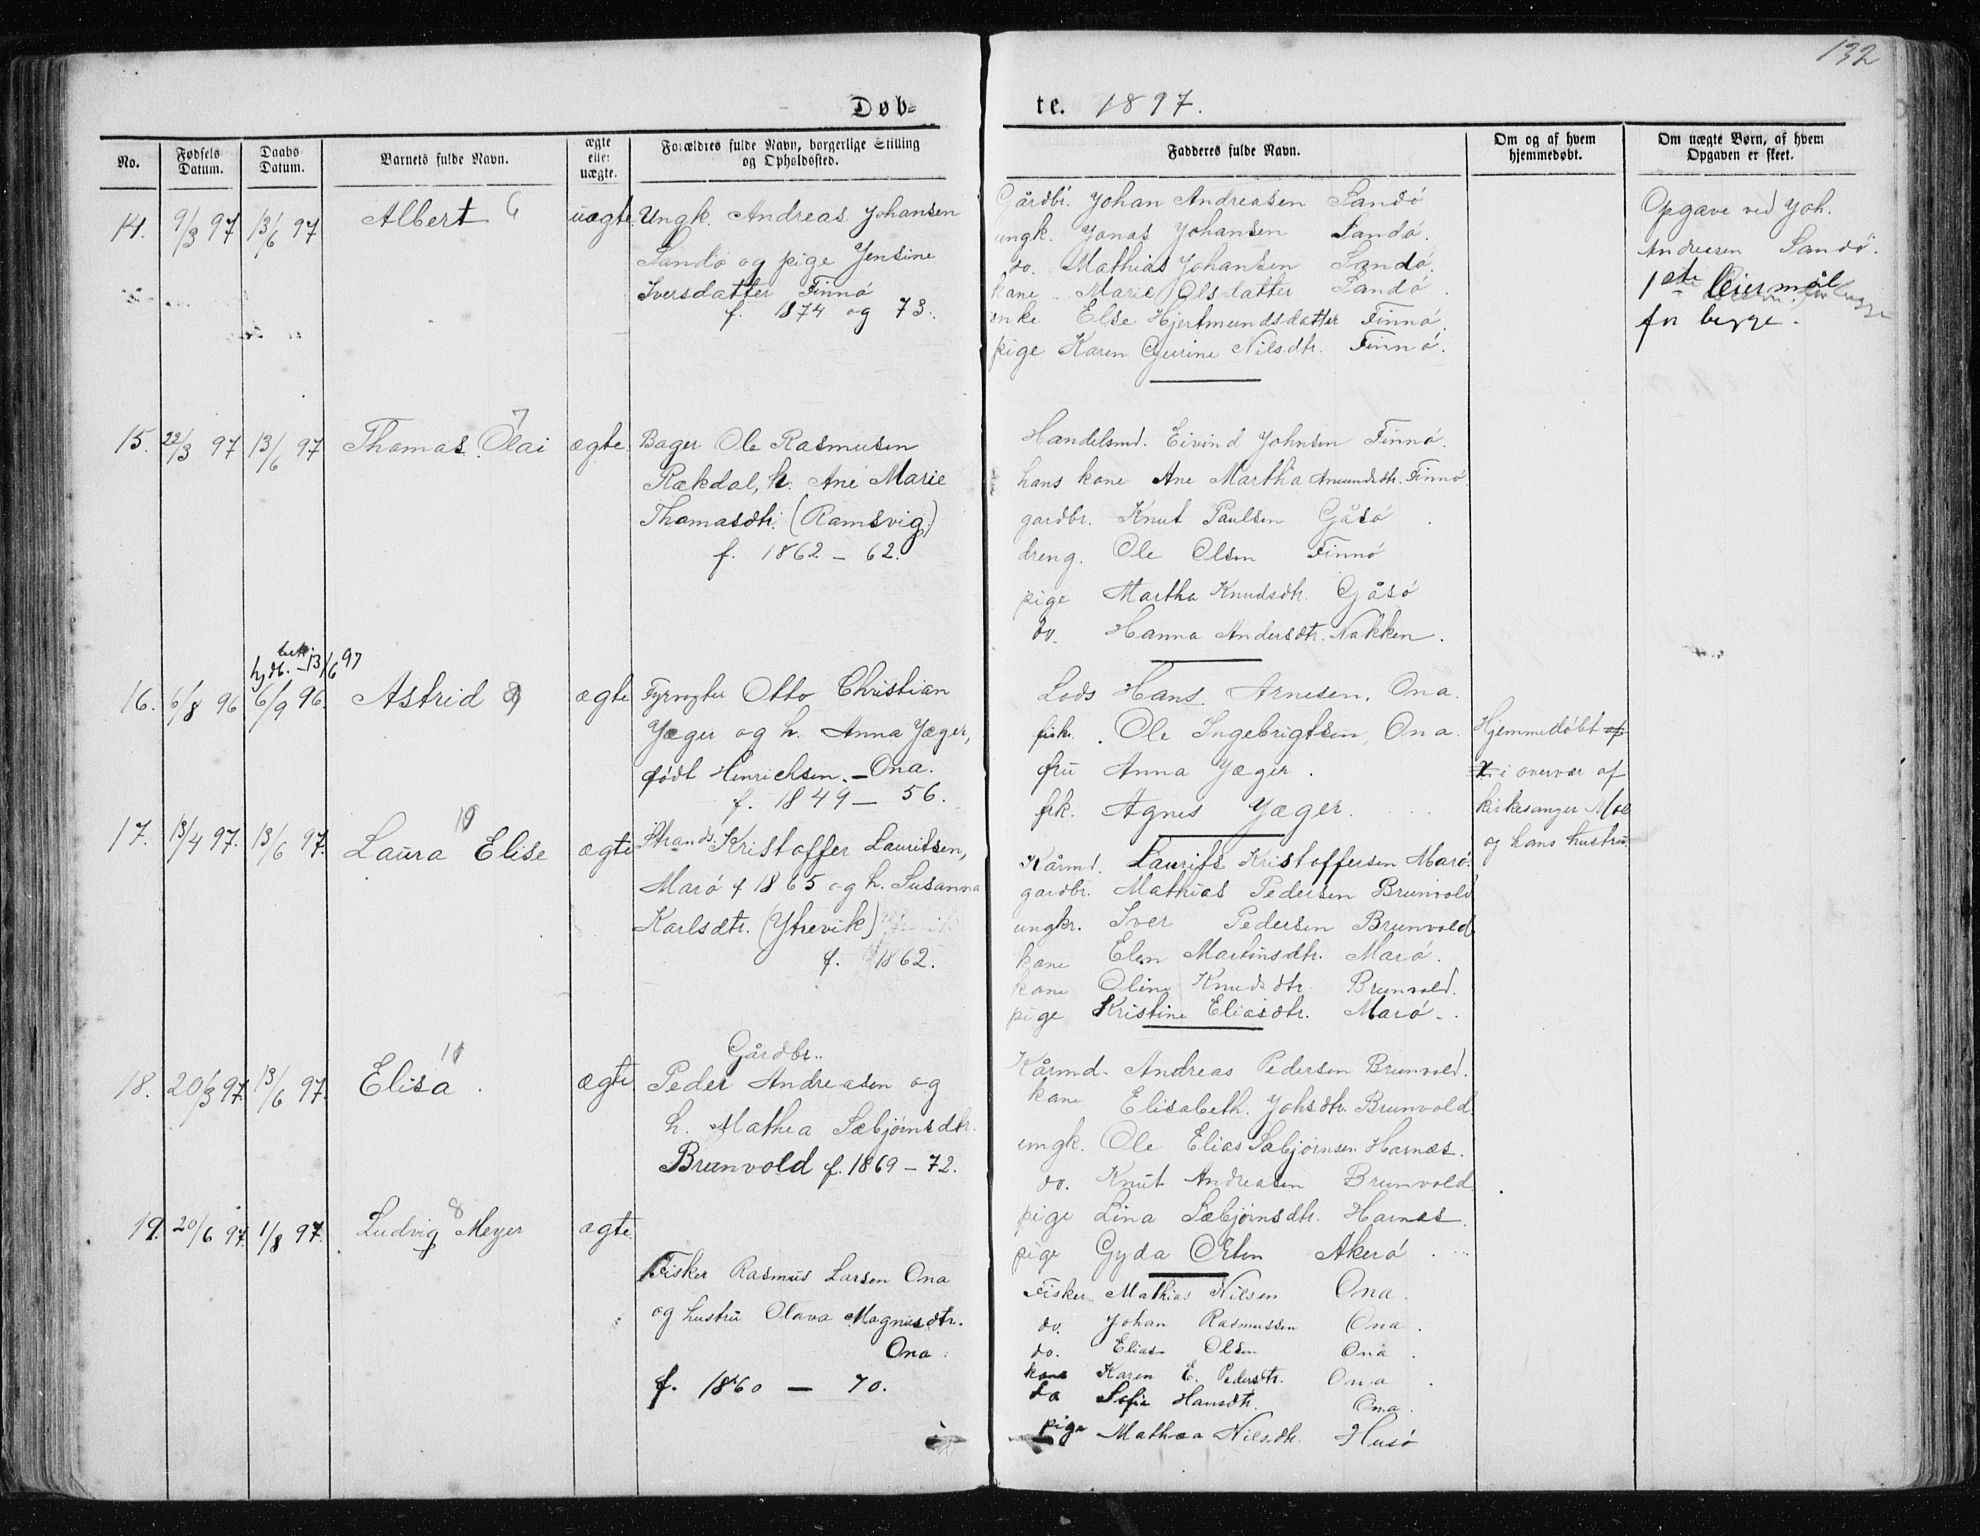 132
Døb-
te. 1897.
No.
Fødsels Datum.
Daabs Datum.
Barnets fulde Navn.
ægte eller uægte.
Forældres fulde Navn, borgerlige Stilling og Opholdssted.
Fadderes fulde Navn.
Om og af hvem hjemmedøbt.
Om uægte Børn, af hvem Opgaven er skeet.
14. 9/3 97 13/6 97 Albert 6 uægte
Ungk. Andreas Johansen
Sandø og pige Jensine
Iversdatter Finnø
f. 1874 og 73.
Gårdbr. Johan Andreasen Sandø
ungk. Jonas Johansen Sandø.
do. Mathias Johansen Sandø.
kane Marie Olsdatter Sandø.
enke Else Hjertmundsdatter Finnø.
pige Karen Gurine Nilsdtr. Finnø.
Opgave ved Joh.
Andreasen Sandø.
1ste leiermål
for begge.
15. 22/3 97 13/6 97 Thomas Olai 7 ægte
Bager Ole Rasmusen
Rækdal, h. Ane Marie
Thomasdtr. (Ramsvig.)
f. 1862 - 62.
Handelsmd. Eivind Johnsen Finnø.
hans kone Ane Martha Amundsdtr. Finnø
gardbr. Knut Paulsen Gåsø.
dreng. Ole Olsen Finnø
pige Martha Knudsdtr. Gåsø
do. Hanna Andersdtr. Nakken.
bek. 13/6 97
hjdb.
16. 6/8 96 6/9 96. Astrid 9 ægte
Fyrvogter Otto Christian
Yæger og h. Anna Yæger,
født Henrichsen. - Ona.
f. 1849 - 56.
Lods Hans Arnesen, Ona.
fisk. Ole Ingebrigtsen, Ona.
fru Anna Yæger.
frk. Agnes Yæger.
Hjemmedøbt af
i overvær af
kirkesanger Moe
og hans hustru.
17. 13/4 97. 13/6 97. Laura Elise 10 ægte
Strands. Kristoffer Lauritsen,
Marø f 1865 og h. Susanna
Karlsdtr. (Ytrevik)
f. 1862.
Kårmd. Laurits Kristoffersen Marø.
gardbr. Mathias Pedersen Brunvold
ungkr. Iver Pedersen Brunvold
kone Elen Martinsdtr. Marø.
kane Oline Knudsdtr. Brunvold.
pige Kristine Eliasdtr. Marø.
18. 20/3 97. 13/6 97. Elisa 11 ægte.
Gårdbr.
Peder Andreasen og
h. Mathea Sæbjørnsdtr.
Brunvold f. 1869 - 72.
Kårmd. Andreas Pedersen Brunvold.
kane Elisabeth. Johsdtr. Brunvold.
ungk. Ole Elias Sæbjørnsen Harnæs.
do. Knut Andreasen Brunvold
pige Lina Sæbjørnsdtr. Harnæs.
pige Gyda Orten Akerø.
19. 20/6 97. 1/8 97. Ludvig Meyer 8 ægte.
Fisker Rasmus Larsen Ona
og hustru Olava Magnusdtr.
Ona.
f. 1860 - 70.
Fisker Mathias Nilsen Ona.
do. Johan Rasmussen Ona.
do. Elias Olsen Ona.
kone Karen E. Pedersdtr. Ona.
do Sofie Hansdtr. Ona.
pige Mathea Nilsdtr. Husø